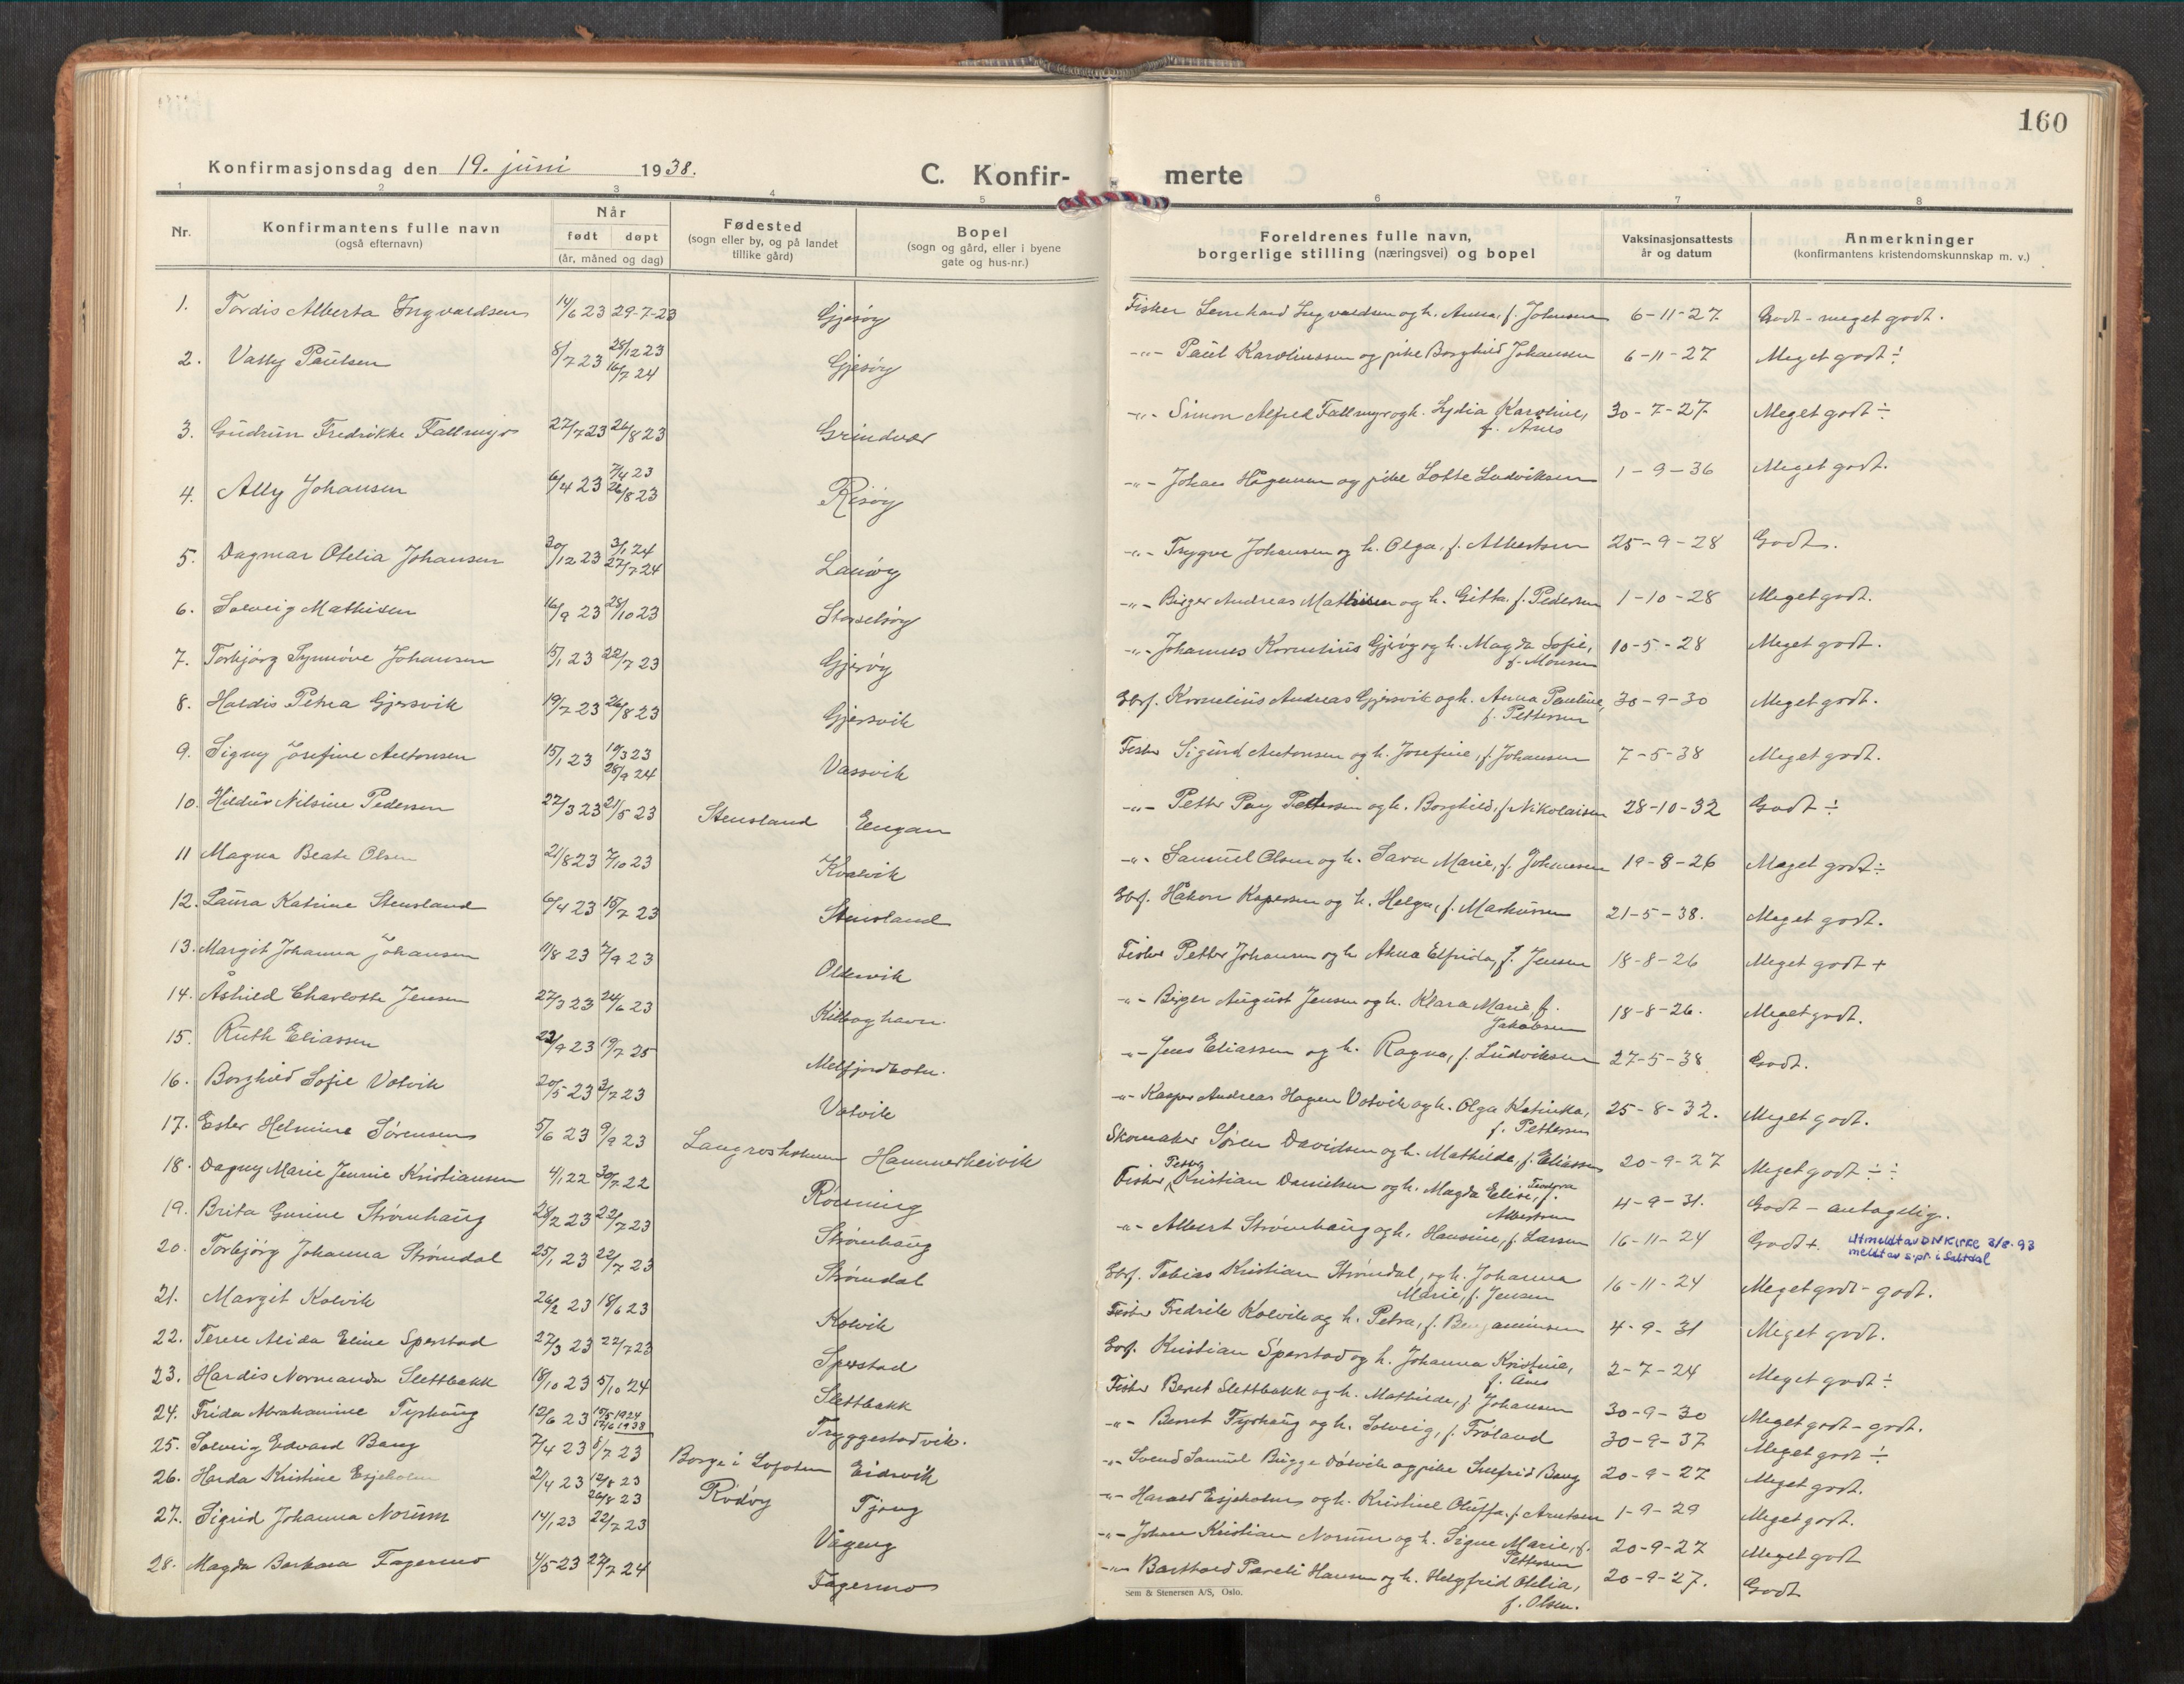 160
Konfirmasjonsdag den 19. juni 1938.
C. Konfir-
merte
1 2 3 4 5 6 7 8
Nr.
Konfirmantens fulle navn
(også efternavn)
Når
født døpt
(år, måned og dag)
Fødested
(sogn eller by, og på landet
tillike gård)
Bopel
(sogn og gård, eller i byene
gate og hus-nr.)
Foreldrenes fulle navn,
borgerlige stilling (næringsvei) og bopel
Vaksinasjonsattests
år og datum
Anmerkninger
(konfirmantens kristendomskunnskap m. v.)
1. Tordis Alberta Ingvaldsen 14/6 23 29-7-23 Gjesøy Fisker Lenhard Ingvaldsen og h. Anna, f. Johansen 6-11-27 Godt - meget godt.
2. Vally Paulsen 8/7 23 28/12 23 16/7 24 Gjesøy -"- Paul Karolinssen og pike Borghild Johansen 6-11-27 Meget godt ÷
3. Gudrun Fredrikke Fallmyr 27/7 23 26/8 23 Grindvær -"- Simon Alfred Fallmyr og h. Lydia Karoline, f. Ånes 30-7-27 Meget godt ÷
4. Ally Johansen 6/4 23 7/4 23 26/8 23 Risøy -"- Johan Hågensen og pike Lotte Ludviksen 1-9-36 Meget godt.
5. Dagmar Otelia Johansen 30/12 23 3/1 24 27/7 24 Lauøy -"- Trygve Johansen og h. Olga, f. Albertsen 25-9-28 Godt.
6. Solveig Mathisen 16/9 23 28/10 23 Storselsøy -"- Birger Andreas Mathisen og h. Gitta, f. Pedersen 1-10-28 Meget godt.
7. Torbjørg Synnøve Johansen 15/1 23 22/7 23 Gjesøy -"- Johannes Kornelius Gjesøy og h. Magda Sofie, f. Monsen 10-5-28 Meget godt.
8. Haldis Petra Gjersvik 19/7 23 26/8 23 Gjersvik Gbr. Kornelius Andreas Gjersvik og h. Anna Pauline, f. Pettersen 30-9-30 Meget godt.
9. Signy Josefine Antonsen 15/1 23 19/3 23 28/9 24 Vassvik Fisker Sigurd Antonsen og h. Josefine, f. Johansen 7-5-38 Meget godt.
10. Hildur Nilsine Pedersen 27/3 23 21/5 23 Stensland Engan -"- Petter Pay Pettersen og h. Borghild, f. Nikolaisen 28-10-32 Godt ÷
11 Magna Beate Olsen 21/8 23 7/10 23 Kvalvik -"- Samuel Olsen og h. Sara Marie, f. Johansen 19-8-26 Meget godt ÷
12. Laura Katrine Stensland 6/4 23 15/7 23 Stensland Gbr. Håkon Kaspersen og h. Helga, f. Markussen 21-5-38. Meget godt.
13. Margit Johanna Johansen 11/8 23 7/9 23 Oldervik Fisker Petter Johansen og h. Anna Elfrida, f. Jensen 18-8-26 Meget godt +
14. Åshild Charlotte Jensen 27/3 23 24/6 23 Kilboghavn. -"- Birger August Jensen og h. Klara Marie, f. Jakobsen 18-8-26. Meget godt.
15. Ruth Eliassen 22/9 23 19/7 25 Melfjordbotn. -"- Jens Eliassen og h. Ragna, f. Ludviksen 27-5-38 Godt.
16. Borghild Sofie Votvik 20/5 23 3/7 23 Votvik -"- Kasper Andreas Hagen Votvik og h. Olga Katinka, f. Pettersen 25-8-32. Meget godt.
17. Ester Helmine Sørensen 5/6 23 9/9 23 Langresholmen Hammerheivik Skomaker Søren Davidsen og h. Mathilde, f. Eliassen 20-9-27 Meget godt ÷ ÷
18. Dagny Marie Jennie Kristiansen 4/1 22 30/7 22 Rønning Fisker Kristian Danielsen og h. Magda Elise, f. Albertsen 4-9-31. Godt - antagelig.
19. Brita Gurine Strømhaug 28/2 23 22/7 23 Strømhaug -"- Albert Strømhaug og h. Hansine, f. Larsen 16-11-24 Godt +. Utmeldt av D N Kirke 3/8-93
meldt av s.pr. i Saltdal
20. Torbjørg Johanna Strømdal 25/1 23 22/7 23 Strømdal Gbr. Tobias Kristian Strømdal, og h. Johanna Marie, f. Jensen 16-11-24 Meget godt - godt.
21. Margit Kolvik 26/2 23 18/6 23 Kolvik Fisker Fredrik Kolvik og h. Petra, f. Benjaminsen 4-9-31 Meget godt.
22. Terese Alida Eline Sperstad 27/3 23 22/7 23 Sperstad Gbr. Kristian Sperstad og h. Johanna Kristine, f. Ånes 2-7-24 Meget godt ÷
23. Hardis Normanda Slettbakk 18/10 23 5/10 24 Slettbakk Fisker Bernt Slettbakk og h. Mathilde, f. Johansen 30-9-30 Meget godt - godt.
24. Frida Abrahamine Tyshaug 12/6 23 15/5 1924 17/6 1938 Tryggestadvik. -"- Bernt Tyshaug og h. Solveig, f. Frøland 30-9-37 Meget godt ÷
25. Solveig Edvard Bang 7/4 23 8/7 23 Borge i Lofoten Eidsvik -"- Svend Samuel Bugge Døsvik og pike Snefrid Bang 20-9-27 Meget godt.
26. Harda Kristine Esjeholm 2/4 23 12/8 23 26/8 23 Rødøy Tjong -"- Harald Esjeholm og h. Kristine Oluffa, f. Arntsen 1-9-29 Meget godt.
27. Sigrid Johanna Norum 14/1 23 22/7 23 Vågeng -"- Johan Kristian Norum og h. Signe Marie, f. Pettersen 20-9-27 Meget godt
28. Magda Barbara Fagermo 4/5 23 27/7 24 Fagermo -"- Barthold Pareli Hansen og h. Helgfrid Otelia, f. Olsen. 20-9-27. Godt
Sem & Stenersen A/S, Oslo.